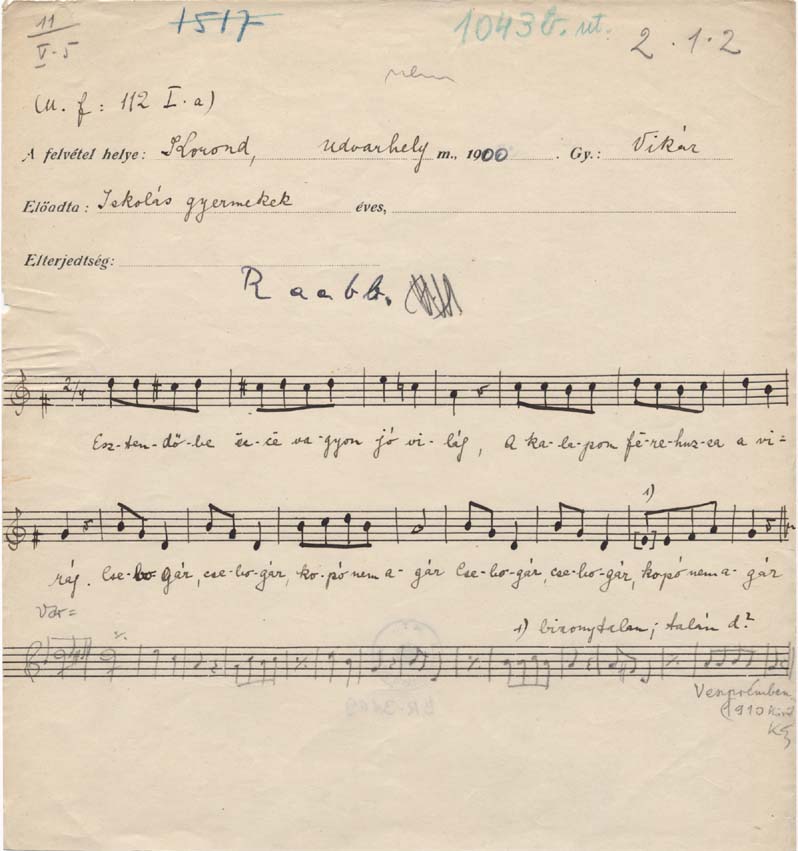 11
V.5
1517
1043 b. ut.
2.1.2
nem
(M. f: 112 I.a)
A felvétel helye: Korond, Udvarhely m., 1900. Gy.: Vikár
Előadta: Iskolás gyermekek éves,
Elterjedtség:
R a a b b.
2/4
Esz-ten-dő-be va-gyon jó vi-lág, A ka-la-pom fé-re-huz-za a vi=
1)
rág. Cse-bo-gár, cse-bo-gár, ko-pó nem a-gár Cse-bo-gár, cse-bo-gár, kopó nem a-gár
Var=
1) bizonytalan; talán d?
Veszprémben
(1910 körül